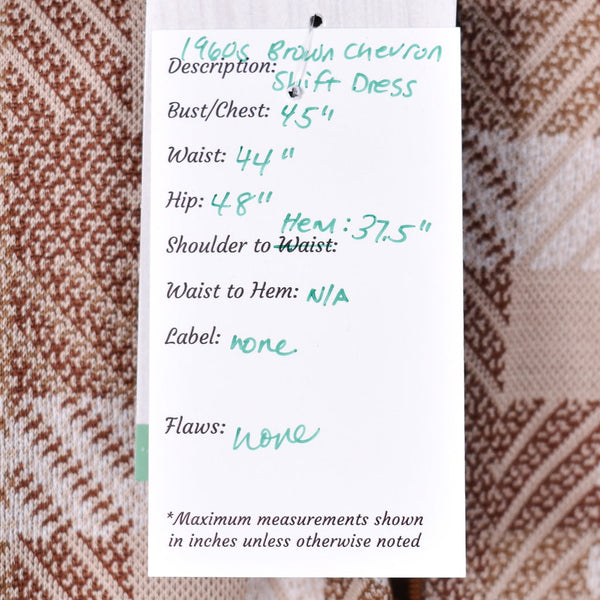 1960s Brown Chevron
Description: Shift Dress
Bust/Chest: 45"
Waist: 44"
Hip: 48"
Hem: 37.5"
Shoulder to Waist:
Waist to Hem: N/A
Label: none
Flaws: none
*Maximum measurements shown
in inches unless otherwise noted